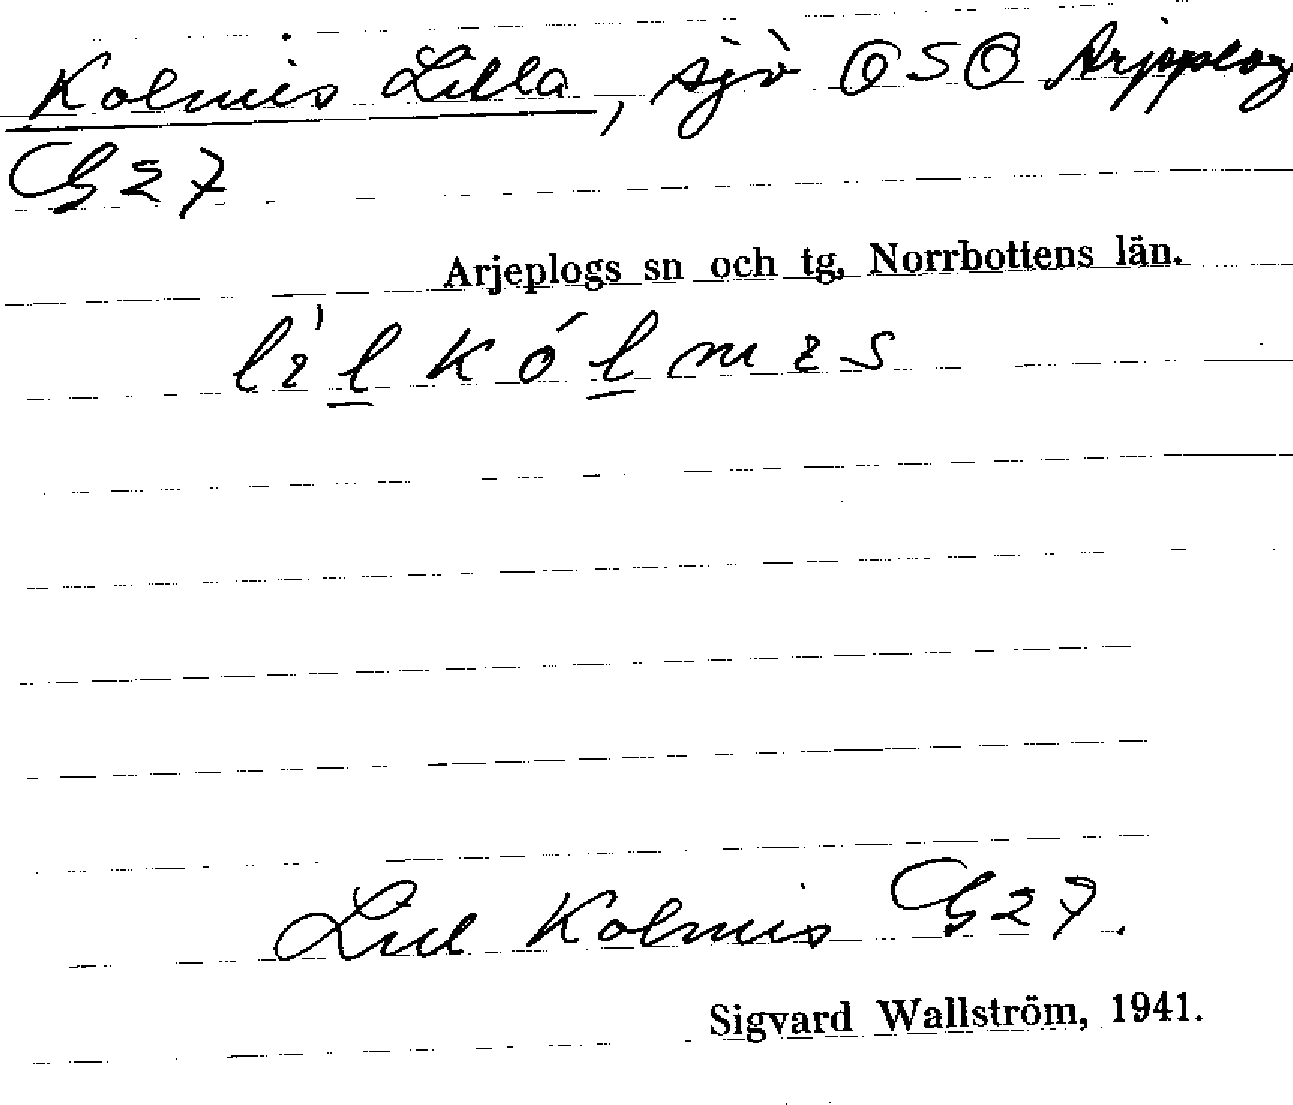 Kolmis Lilla, sjö OSO Arjeplog
G27
Arjeplogs sn och tg, Norrbottens län.
lɪ̀l̲ kól̲mɪs
Lill Kolmis G27.
Sigvard Wallström, 1941.